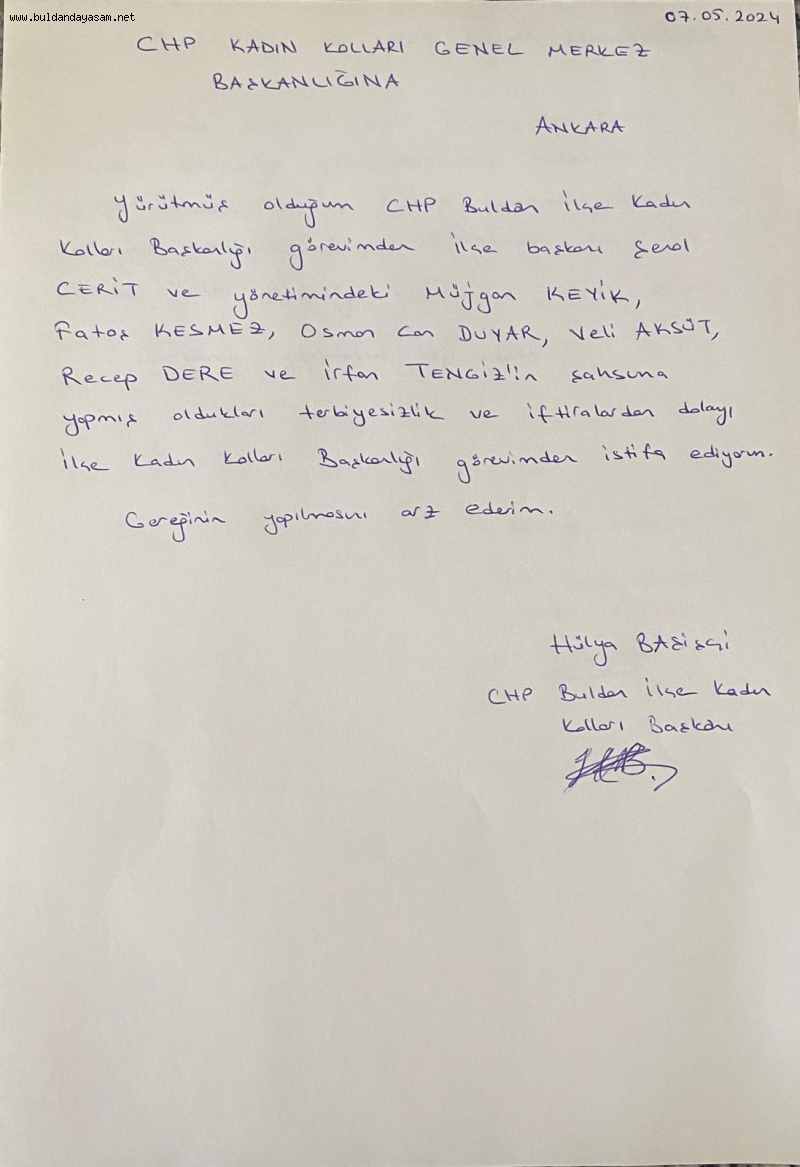 www.buldandayasam.net
07.05.2024
CHP KADIN KOLLARI GENEL MERKEZ
BAŞKANLIĞINA
ANKARA
Yürütmüş olduğum CHP Buldan İlçe Kadın
Kolları Başkanlığı görevimden ilçe başkanı Şenol
CERİT ve yönetimindeki Müjgan KEYİK,
Fatoş KESMEZ, Osman Can DUYAR, Veli AKSÜT,
Recep DERE ve İrfan TENGİZ'in şahsıma
yapmış oldukları terbiyesizlik ve iftiralardan dolayı
ilçe Kadın Kolları Başkanlığı görevimden istifa ediyorum.
Gereğinin yapılmasını arz ederim.
Hülya BAŞİŞÇİ
CHP Buldan İlçe Kadın
Kolları Başkanı